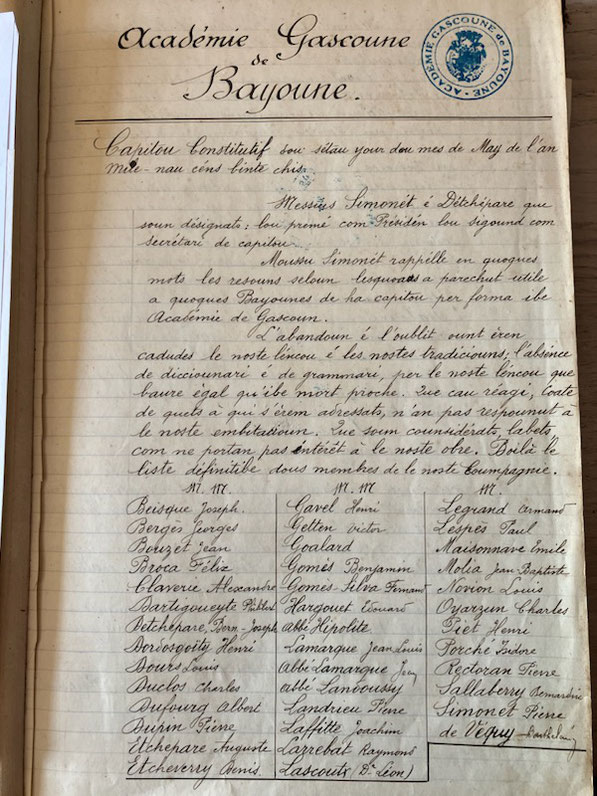 Académie Gascoune
de
Bayoune.
ACADÉMIE GASCOUNE de BAYOUNE
Capitou Constitutif dou sétau your dou mes de May de l'an
mile-nau céns binte chis.
Messius Simonét é Détchépare que
soun désignats: lou premé com Présidén lou sigound com
secrétari de capitou.
Moussu Simonét rappélle en quoques
mots les resouns seloun lesquoaus a parechut utile
a quoques Bayounes de ha capitou per forma ibe
Académie de Gascoun.
L'abandoun é l'oublit ount éren
cadudes le noste léncou é les nostes tradiciouns; l'absénce
de dicciounari é de grammari, per le noste léncou que
baure égal qu'ibe mort prioche. Que cau réagi, Coate
de quets à qui s'érem adressats, n'an pas respounut à
le noste embitatioun. Que soum counsidérats, labets,
com ne portan pas intérêt à le noste obre. Boilà le
liste définitibe dous membres de le noste Coumpagnie.
M. M.
Beisque Joseph.
Bergès Georges
Bouzet Jean
Broca Félix
Claverie Alexandre
Dartigoueyte
Detchepare, Bern-Joseph
Dordosgoïty Henri
Dours Louis
Duclos Charles
Dufourg Albert
Dupin Pierre
Etchepare Auguste
Etcheverry Denis.
M. M
Gavel Henri
Getten Victor
Goalard
Gomès Benjamin
Gomès-Silva Fernand
Hargouet Edouard
Abbé Hipolite
Lamarque Jean Louis
Abbé Lamarque Jean
abbé Landoussy
Landrieu Pierre
Laffitte Joachim
Larrebat Raymond
Lascoutx (Dr Léon)
M.
Legrand Armand
Lespes Paul
Maisonnave Emile
Molia Jean Baptiste
Novion Louis
Oyarzun Charles
Piet Henri
Porché Isidore
Rectoran Pierre
Sallaberry Bernardin
Simonet Pierre
de Véquy Barthélémy